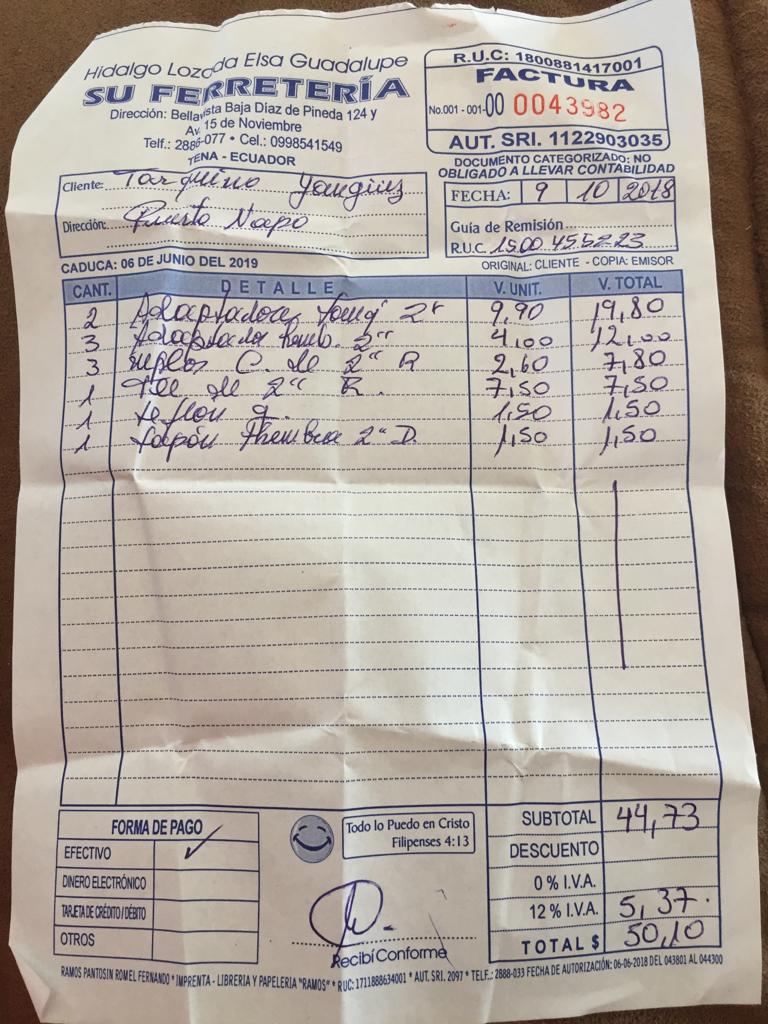 Hidalgo Lozada Elsa Guadalupe
SU FERRETERÍA
Dirección: Bellavista Baja Díaz de Pineda 124 y
Av. 15 de Noviembre
Telf.: 2886-077 • Cel.: 0998541549
TENA - ECUADOR
R.U.C: 1800881417001
FACTURA
No.001 - 001-00 0043982
AUT. SRI. 1122903035
DOCUMENTO CATEGORIZADO: NO
OBLIGADO A LLEVAR CONTABILIDAD
Cliente: Tarquino
Dirección: Puerto Napo
FECHA: 9 10 2018
Guía de Remisión
R.U.C. 1500455223
CADUCA: 06 DE JUNIO DEL 2019
ORIGINAL: CLIENTE - COPIA: EMISOR
CANT. DETALLE V. UNIT. V. TOTAL
2 Adaptadores 2" 9,90 19,80
3 Adaptador 2" 4,00 12,00
3 C. de 2" R 2,60 7,80
1 Tee de 2" R. 7,50 7,50
1 teflon g. 1,50 1,50
1 tapón Hembra 2" D. 1,50 1,50
FORMA DE PAGO
EFECTIVO ✓
DINERO ELECTRÓNICO
TARJETA DE CRÉDITO / DÉBITO
OTROS
Todo lo Puedo en Cristo
Filipenses 4:13
Recibí Conforme
SUBTOTAL 44,73
DESCUENTO
0 % I.V.A.
12 % I.V.A. 5,37
TOTAL $ 50,10
RAMOS PANTOSIN ROMEL FERNANDO * IMPRENTA - LIBRERIA Y PAPELERIA "RAMOS" * RUC: 1711888634001 * AUT. SRI. 2097 * TELF.: 2888-033 FECHA DE AUTORIZACIÓN: 06-06-2018 DEL 043801 AL 044300